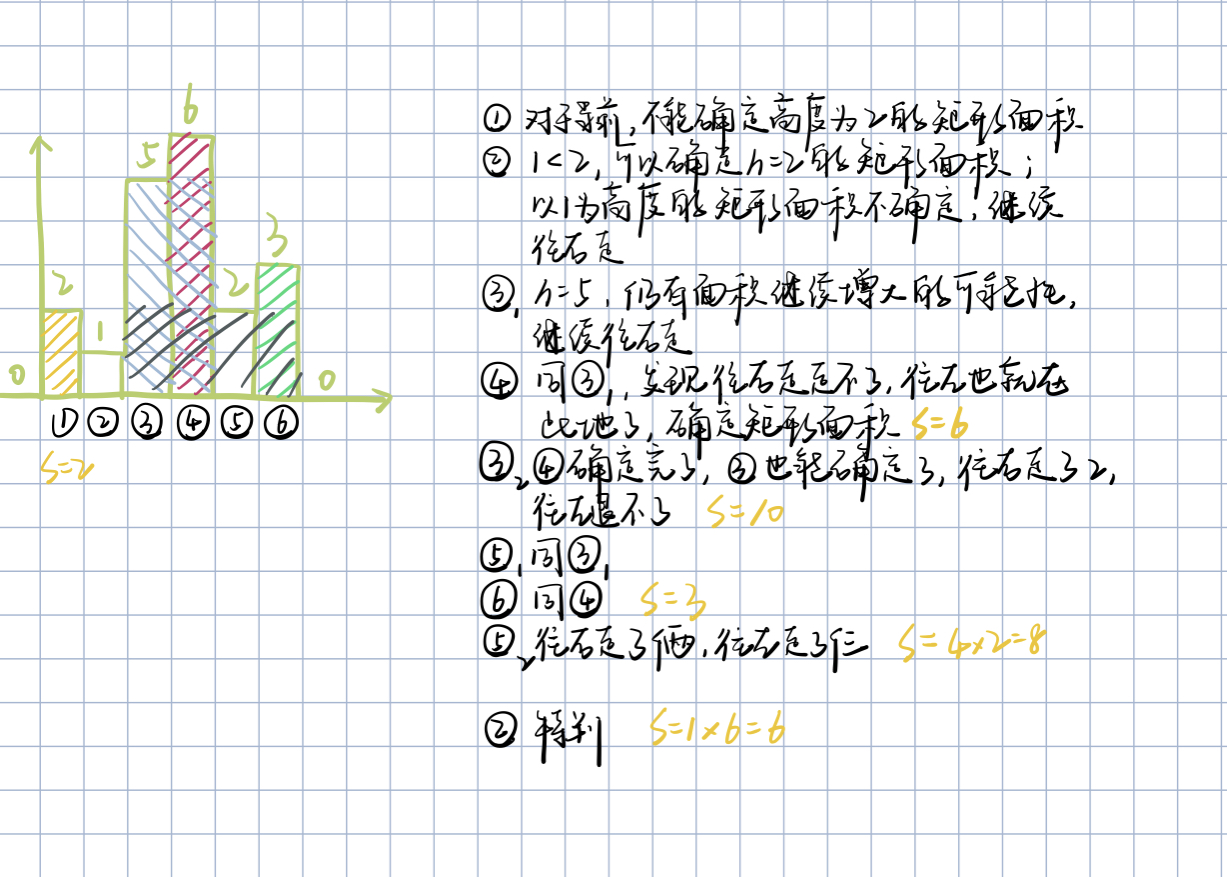 6
5
3
2
2
1
0
0
① ② ③ ④ ⑤ ⑥
S=2
① 对于当前,不能确定高度为2的矩形面积
② 1<2,可以确定h=2的矩形面积;
以1为高度的矩形面积不确定,继续
往右走
③₁ h=5,仍有面积继续增大的可能性,
继续往右走
④ 同③₁,发现往右走走不了,往左也就在
此地了,确定矩形面积 S=6
③₂ ④确定完了,③也能确定了,往右走了2,
往左退不了 S=10
⑤₁ 同③₁
⑥ 同④ S=3
⑤₂ 往右走了俩,往左走了仨 S=4×2=8
② 特判 S=1×6=6